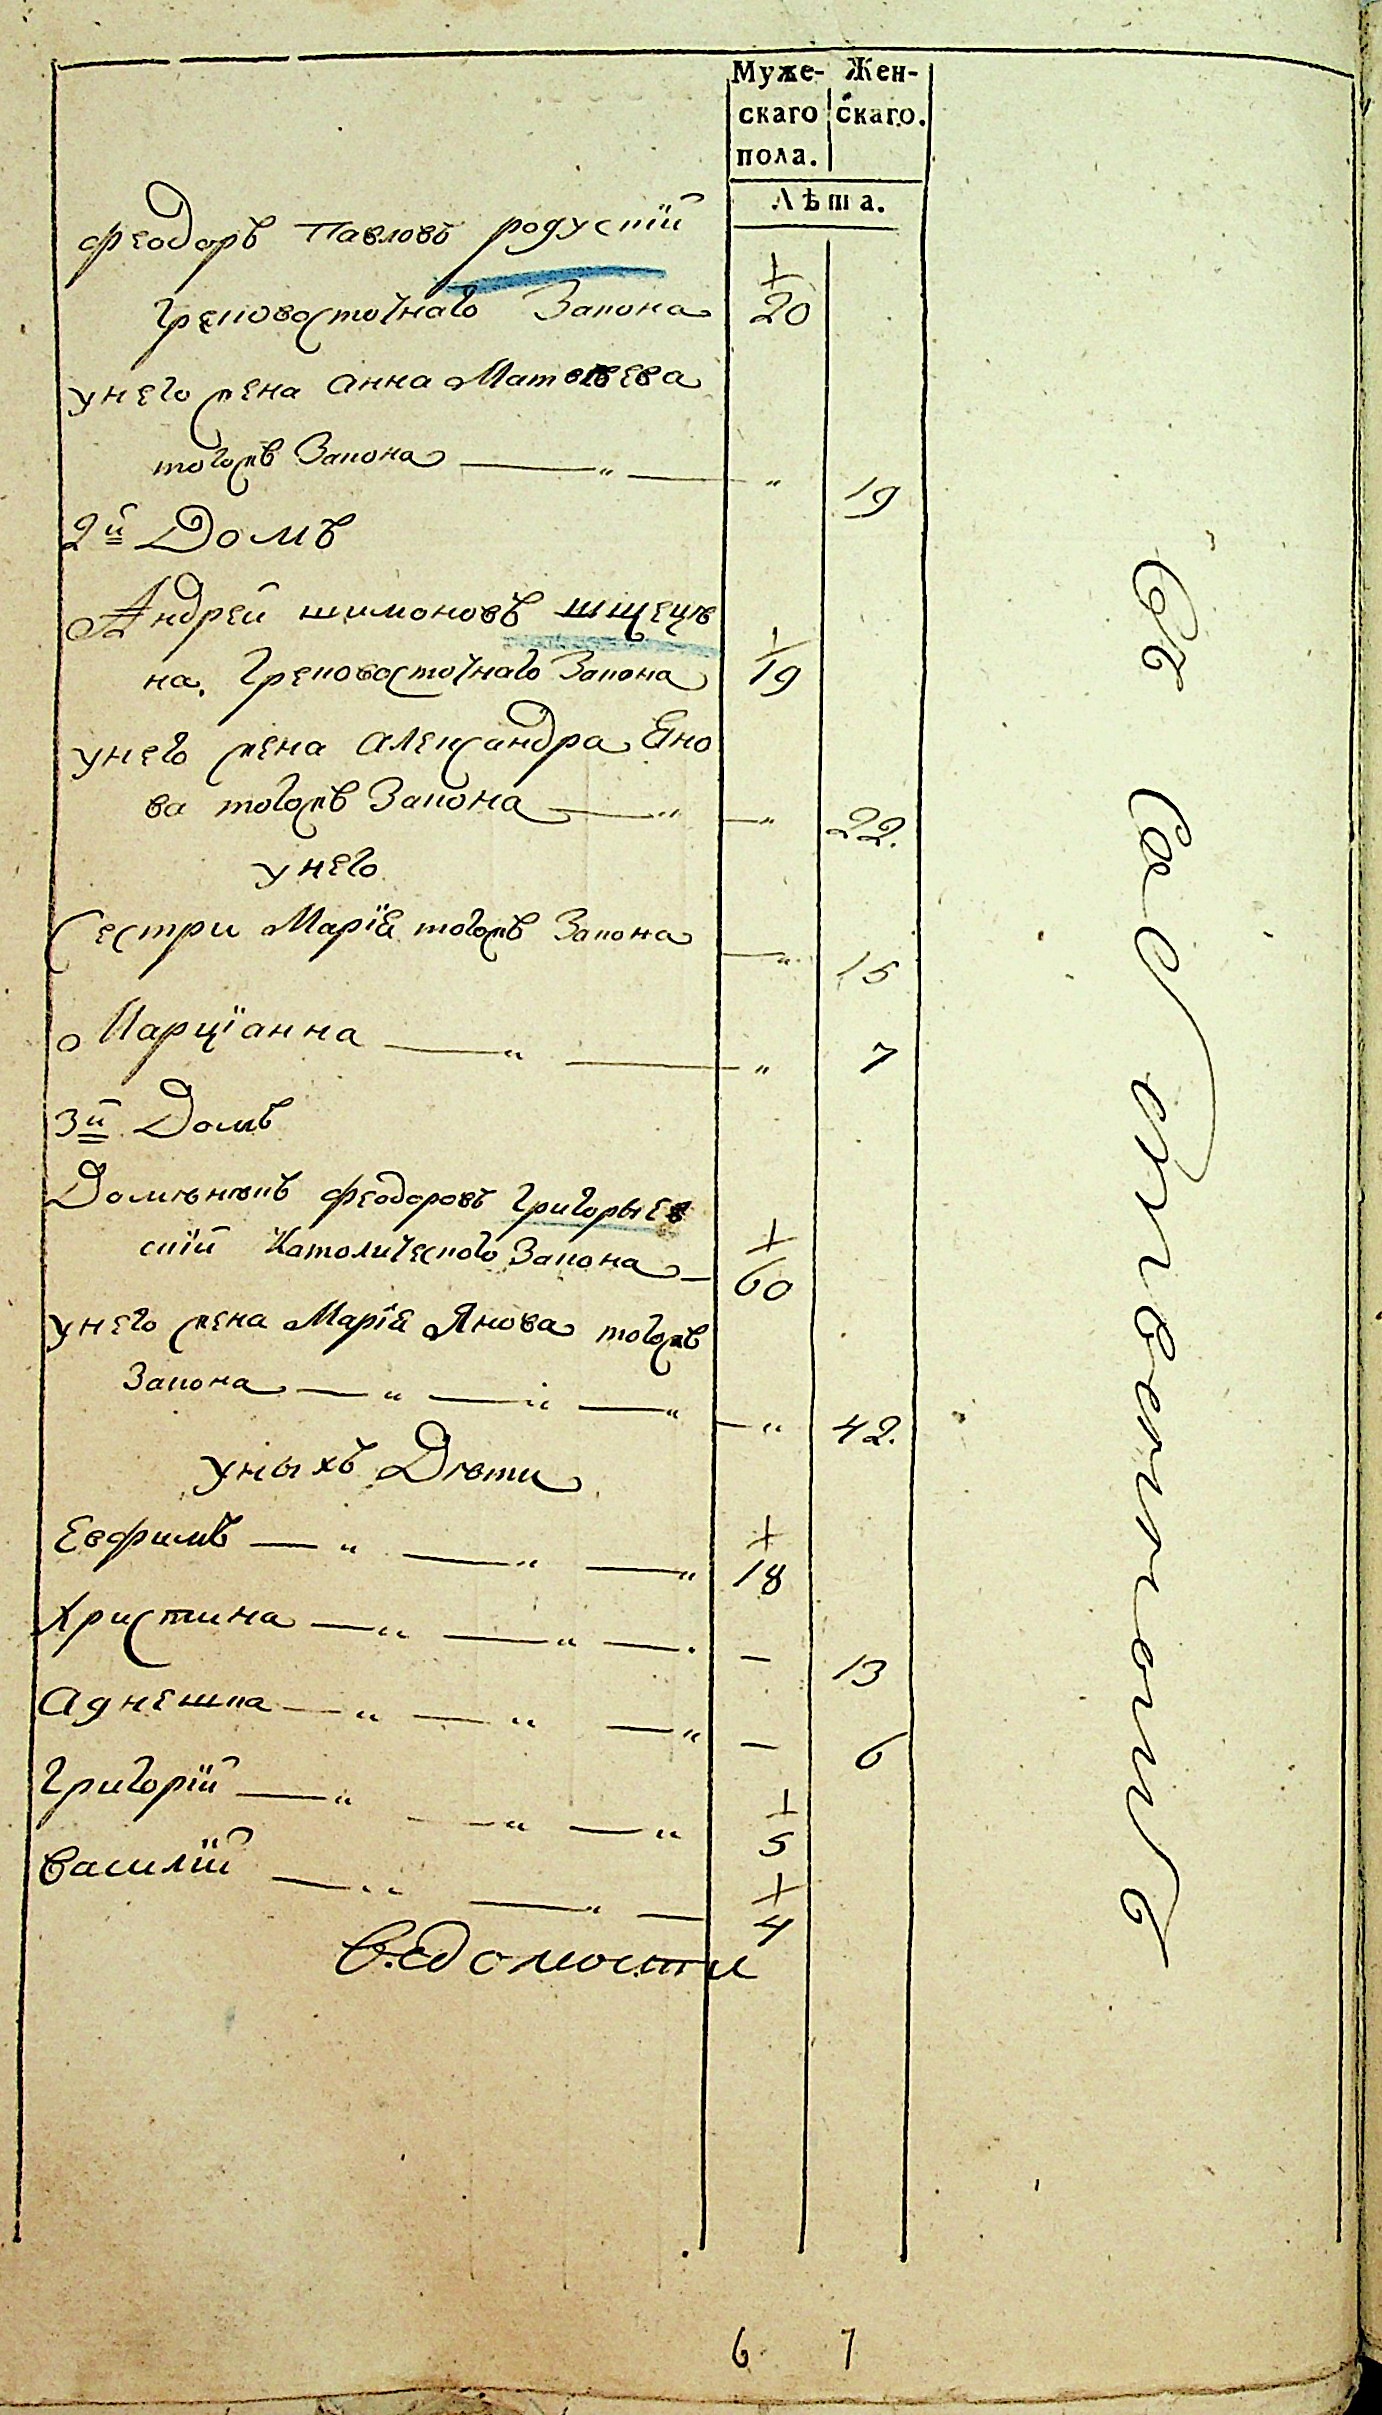 Муже- Жен-
скаго скаго.
пола.
Лѣта.
Феодоръ Павловъ родускій
Грековосточнаго Закона 1 20
унего жена Анна Матвѣева
тогожъ Закона — " — " 19
2й Домъ
Андрей шимоновъ
на. Грековосточнаго Закона 1 19
унего жена Александра
ва тогожъ Закона — " — " 22.
унего
Сестри Маріѣ тогожъ Закона — " 15
Марціанна — " — " 7
3й Домъ
Доминѣкъ Феодоровъ Григорыев
скій Католического Закона — 1 60
унего жена Маріѣ Янова тогожъ
Закона — " — " — " — " 42.
уныхъ Дѣти
Евфимъ — " — " — " 1 18
Христина — " — " — . — 13
Агнешка — " — " — " — 6
Григорій — " — " — " 1 5
Василій — " — " — 1 4
Ведомости
6 7